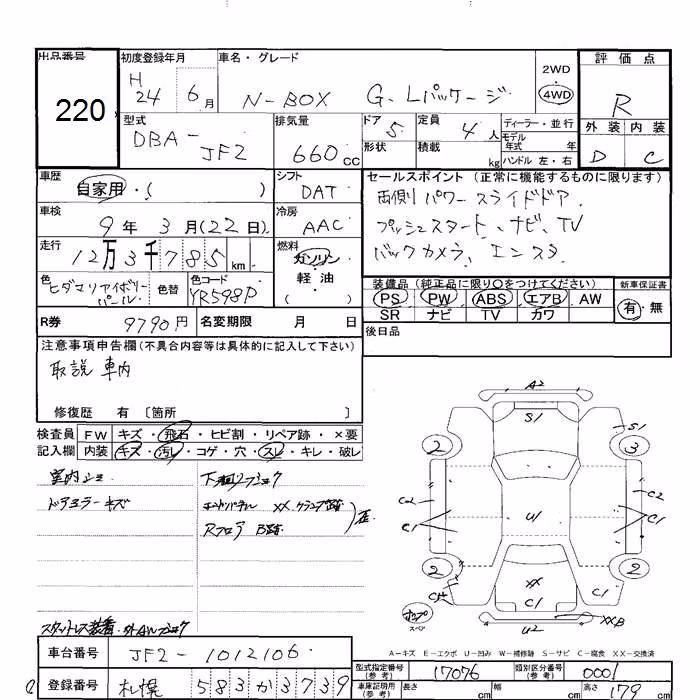 出品番号 初度登録年月 車名・グレード 2WD 評価点
220 H 24 6月 N-BOX G・Lパッケージ 4WD R
型式 排気量 ドア 定員 ディーラー・並行 外装 内装
DBA- JF2 660cc 5 4人 モデル年式 年 D C
形状 積載 kg ハンドル 左・右
車歴 シフト セールスポイント (正常に機能するものに限ります)
自家用・( ) DAT 両側パワースライドドア、
車検 冷房 プッシュスタート、ナビ、TV
9年 3月(22日) AAC バックカメラ、エンスタ
走行 燃料
12万3千785km ガソリン・軽油
装備品(純正品に限り○をつけてください) 新車保証書
色 色替 色コード PS PW ABS エアB AW 有・無
ヒダマリアイボリーパール YR598P SR ナビ TV カワ
R券 9790円 名変期限 月 日 後日品
注意事項申告欄(不具合内容等は具体的に記入して下さい)
取説 車内
修復歴 有 〔箇所 〕
検査員 FW キズ・飛石・ヒビ割・リペア跡・×要
記入欄 内装 キズ・汚レ・コゲ・穴・スレ・キレ・破レ
室内シミ
ドアミラーキズ
XX
Rフロア
A2
S1
S1
2 3
C2 C2
C1 U1 C1
2 2
XX
C1 C1
スペア U2 XXB
A-キズ E-エクボ U-凹み W-補修跡 S-サビ C-腐食 XX-交換済
車台番号 JF2-1012106
型式指定番号(参考) 17076 類別区分番号(参考) 0001
登録番号 札幌 583か3739
車庫証明用(参考) 長さ cm 幅 cm 高さ 179cm